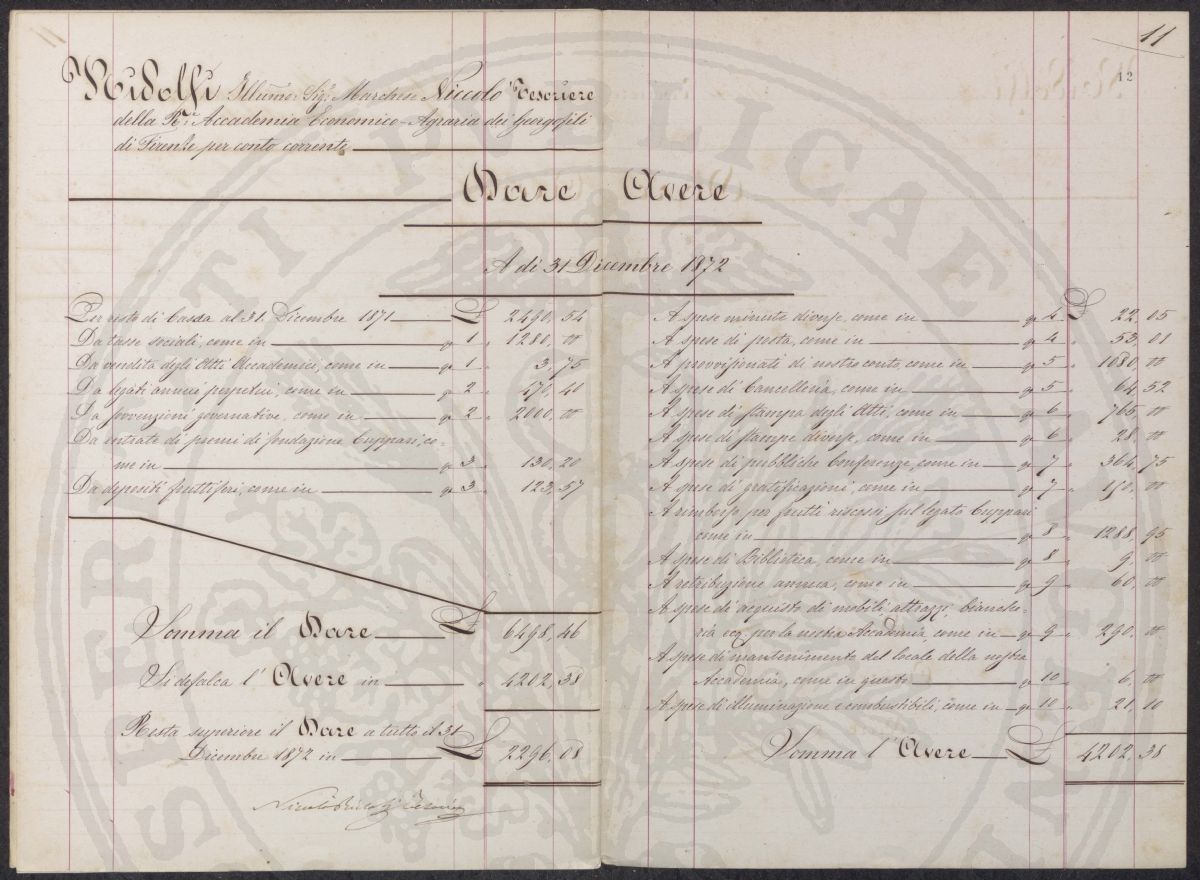 11
12
Ridolfi Illumo. Sigr. Marchese Niccolò Tesoriere
della Rle. Accademia Economico-Agraria dei Georgofili
di Firenze per conto corrente
Dare Avere
A dì 31 Dicembre 1872
Per resto di Cassa al 31. Dicembre 1871 £ 2490, 54
Da tasse sociali, come in 1 " 1280, "
Da vendita degli Atti Accademici, come in 1 " 3, 75
Da legati annui perpetui, come in 2 " 470, 40
Da sovvenzioni governative, come in 2 " 2000, "
Da entrate di premi di fondazione Cuppari co-
me in 3 " 130, 20
Da depositi fruttiferi, come in 3 " 123, 57
Somma il Dare £ 6498, 46
Si defalca l'Avere in " 4202, 38
Resta superiore il Dare a tutto il 31
Dicembre 1872 in £ 2296, 08
A spese minute diverse, come in 4 £ 22, 05
A spese di posta, come in 4 " 53, 01
A provvisionati di nostro conto, come in 5 " 1080, "
A spese di Cancelleria, come in 5 " 64, 52
A spese di stampa degli Atti, come in 6 " 765, "
A spese di stampe diverse, come in 6 " 28, "
A spese di pubbliche Conferenze, come in 7 " 364, 75
A spese di gratificazioni, come in 7 " 150, "
A rimborso per frutti riscossi sul legato Cuppari
come in 8 " 1288, 95
A spese di Biblioteca, come in 8 " 9, "
A retribuzione annua, come in 9 " 60, "
A spese di acquisto di mobili, attrazzi, bianche-
ria ecc. per la nostra Accademia, come in 9 " 290, "
A spese di mantenimento del locale della nostra
Accademia, come in questo 10 " 6, "
A spese di illuminazione e combustibili, come in 10 " 21, 10
Somma l'Avere £ 4202, 38